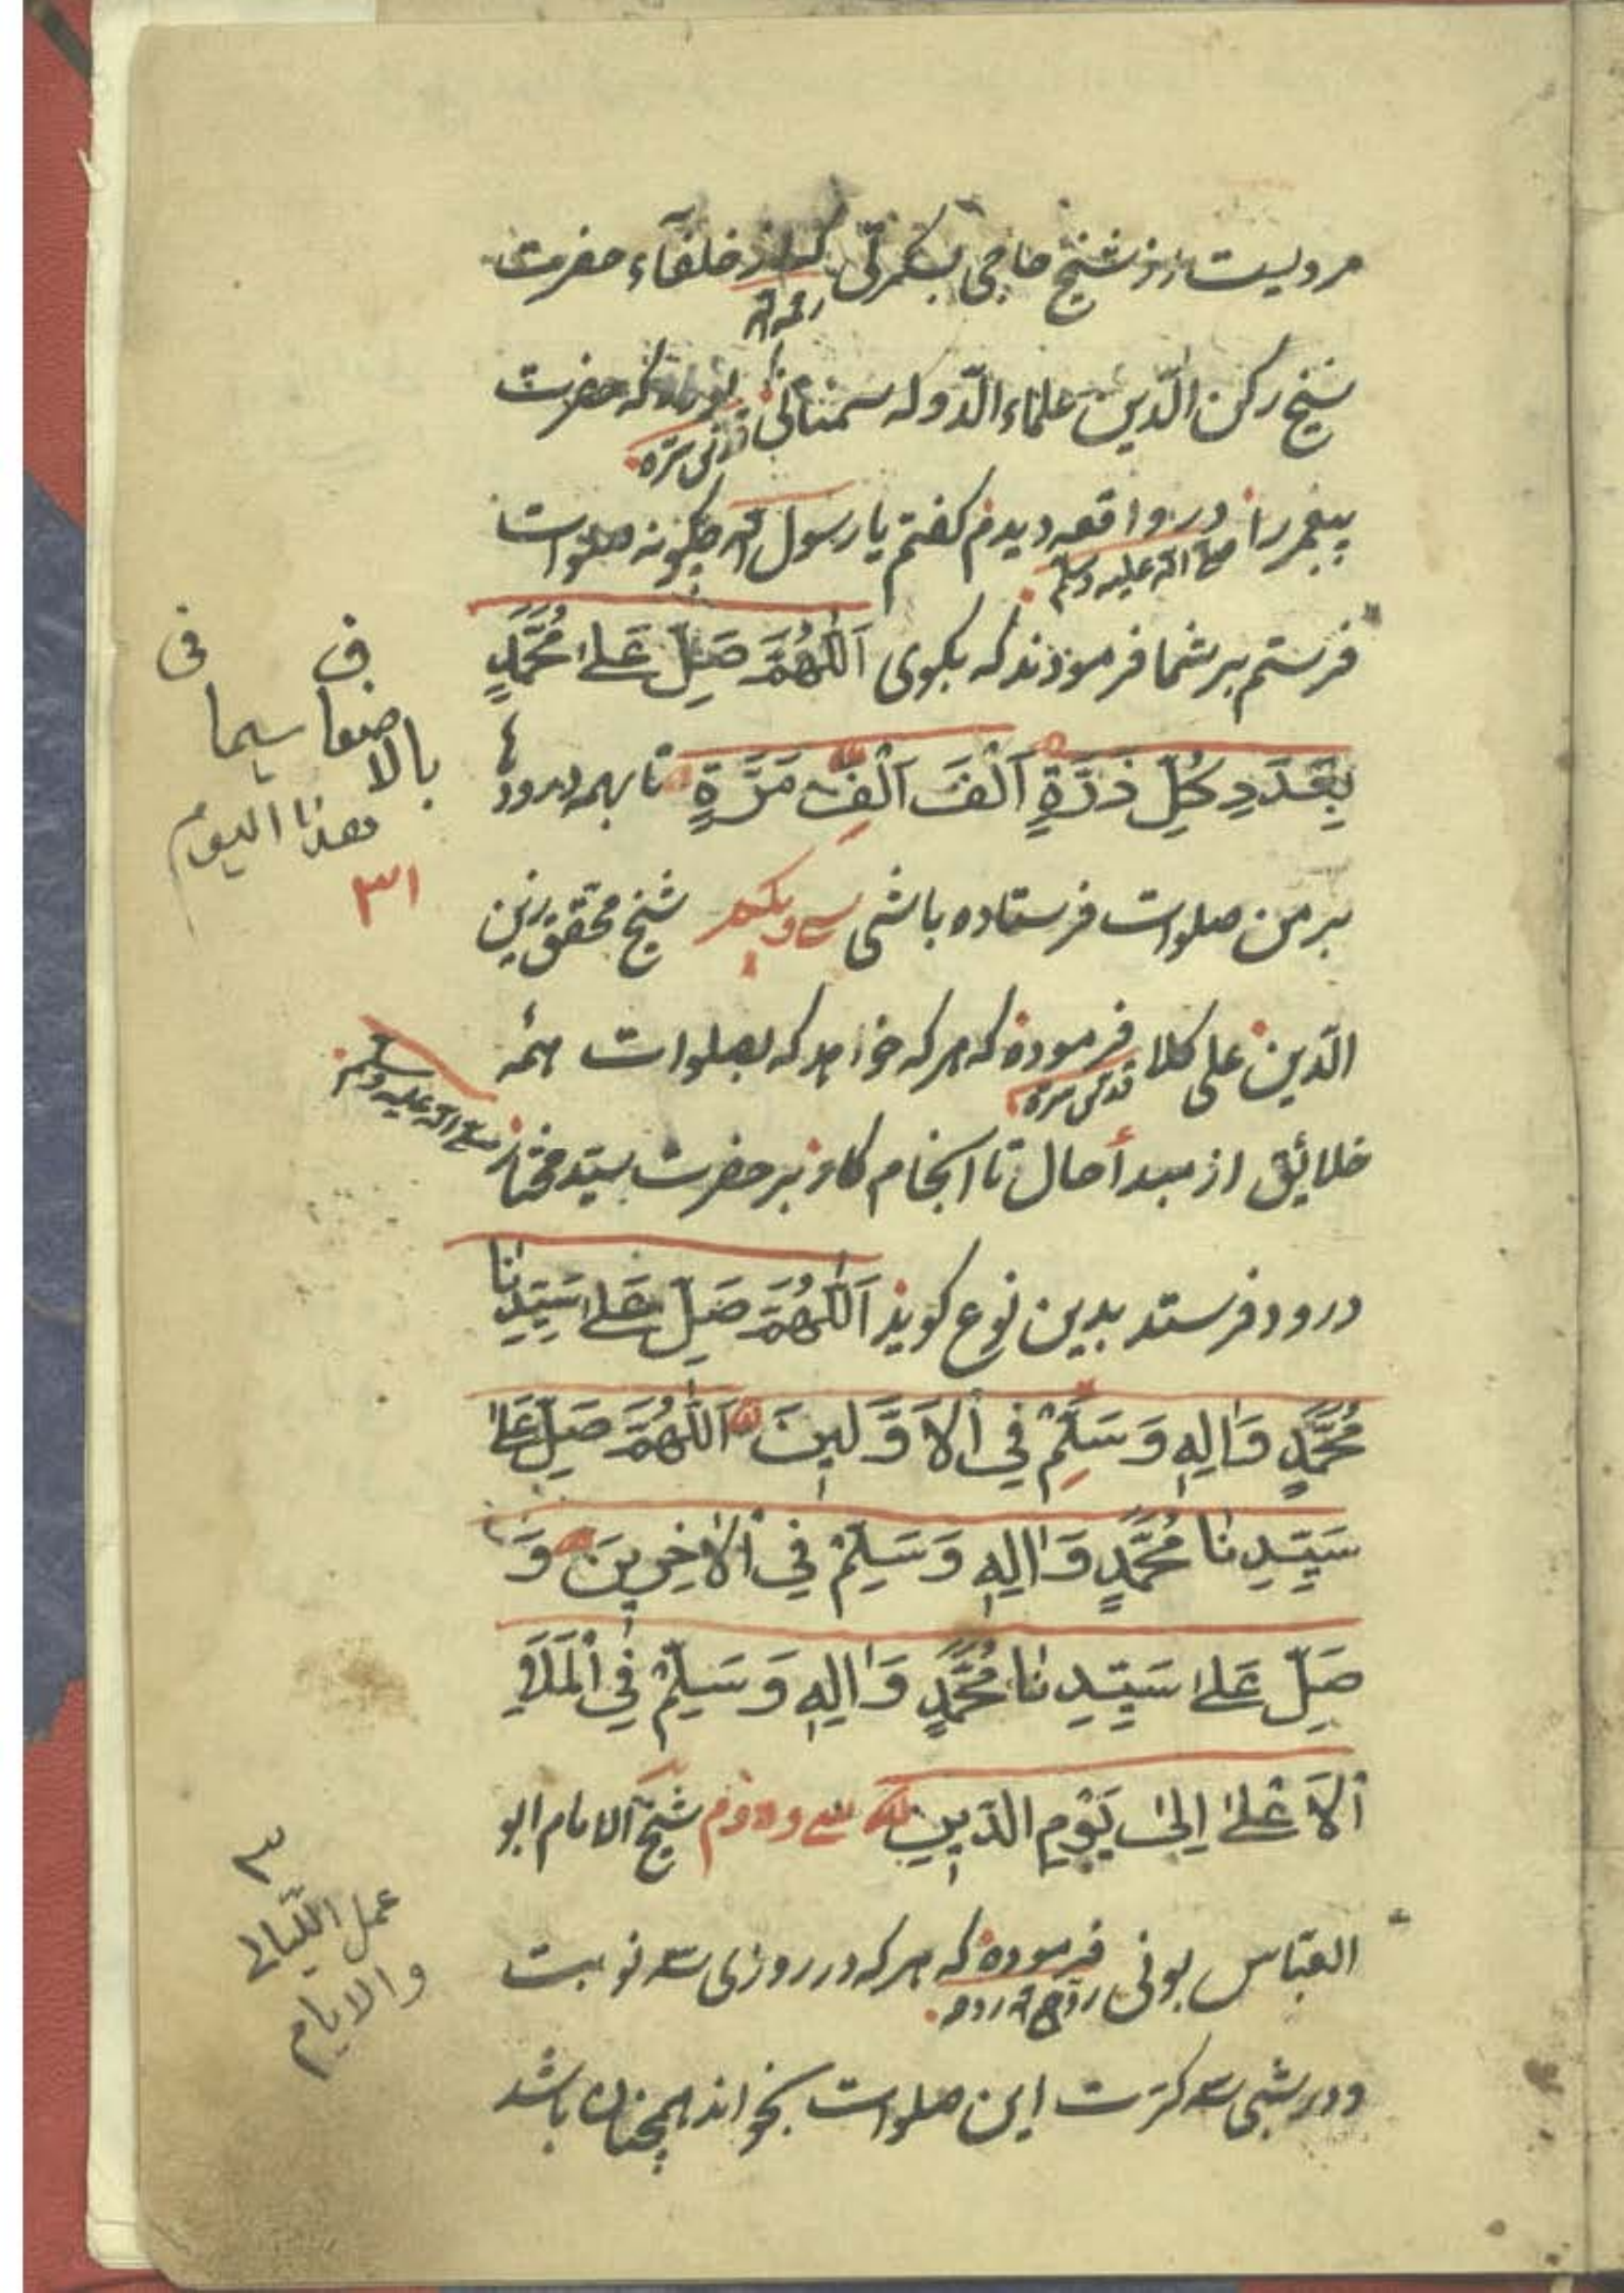 مرویست از شیخ حاجی بسکمرتی که از خلفآء حضرت
رحمه الله
شیخ رکن الدّین علاء الدّوله سمنانی بوده که حضرت
قدّس سرّه
پیغمبر را در واقعه دیدم کفتم یا رسول الله چکونه صلوات
صلی الله علیه وسلم
فرستم بر شما فرمودند که بکوی اَللّٰهُمَّ صَلِّ عَلٰى مُحَمَّدٍ
بِعَدَدِ كُلِّ ذَرَّةٍ اَلْفَ اَلْفِ مَرَّةٍ تا بهمه درود
بر من صلوات فرستاده باشی سی ویکم شیخ محقق زین
الدّین علی کلا فرموده که هر که خواهد که بصلوات همه
قدس سره
خلائق از مبدأ حال تا انجام کار بر حضرت سیّد مختار
صلی الله علیه وسلم
درود فرستد بدین نوع کوید اَللّٰهُمَّ صَلِّ عَلٰى سَيِّدِنَا
مُحَمَّدٍ وَاٰلِهٖ وَسَلِّمْ فِي الْاَوَّلِينَ اَللّٰهُمَّ صَلِّ عَلٰى
سَيِّدِنَا مُحَمَّدٍ وَاٰلِهٖ وَسَلِّمْ فِي الْاٰخِرِينَ وَ
صَلِّ عَلٰى سَيِّدِنَا مُحَمَّدٍ وَاٰلِهٖ وَسَلِّمْ فِي الْمَلَاِ
الْاَعْلٰى اِلٰى يَوْمِ الدّٖينِ سی ودوم شیخ الامام ابو
العبّاس بونی فرموده که هر که در روزی سه نوبت
روّح الله روحه
ودر شبی سه کرّت این صلوات بخواند همچنان باشد
ف
فی
بالاضعا سیما
هذا الیوم
٣١
٣
عمل اللّیالی
والایام